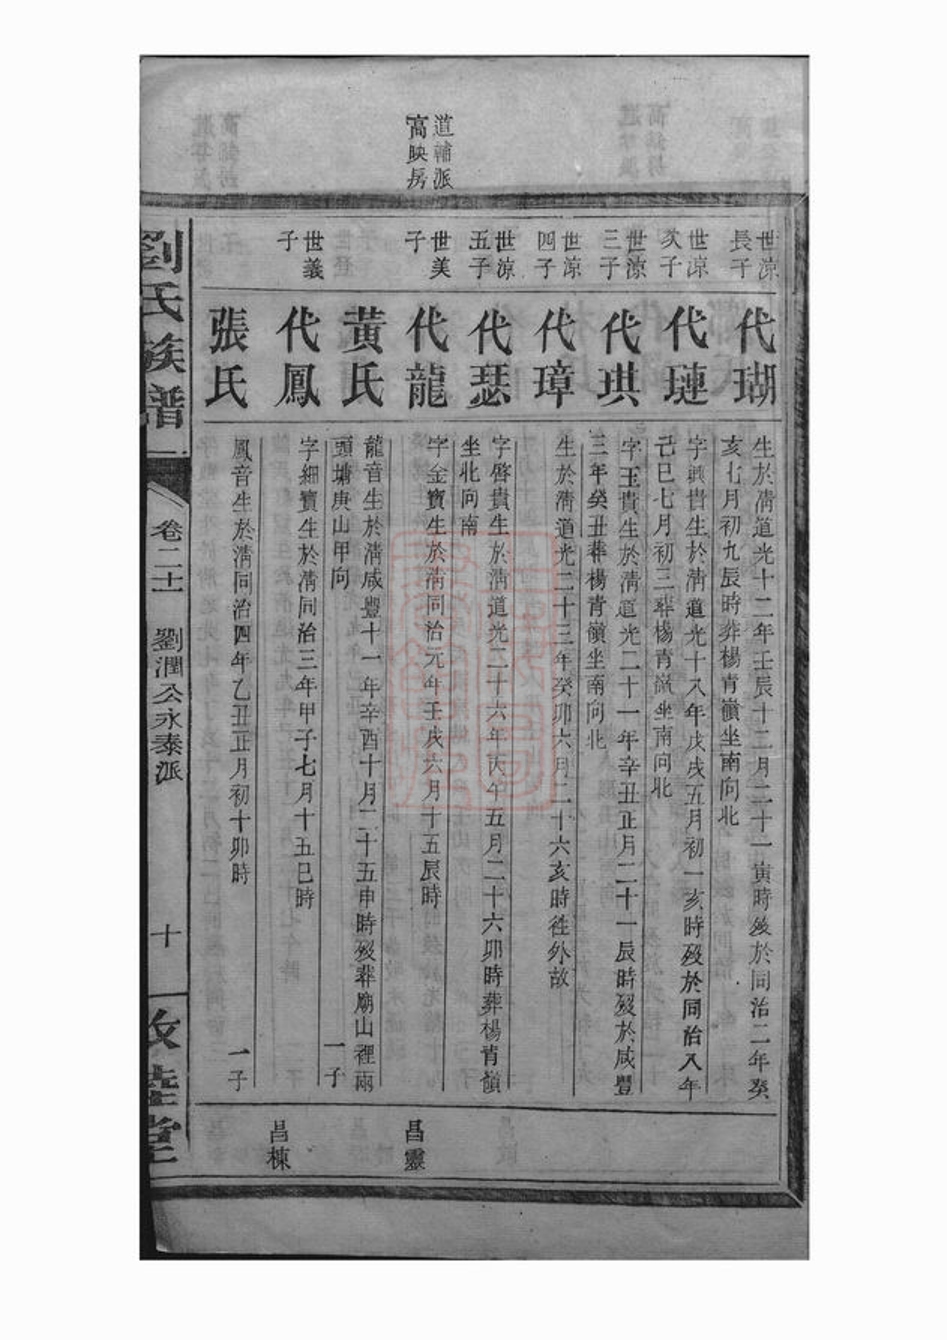 道輔派
高映房
世涼
長子
代瑚
生於清道光十二年壬辰十二月二十一寅時歿於同治二年癸
亥七月初九辰時葬楊青嶺坐南向北
世涼
次子
代璉
字興貴生於清道光十八年戊戌五月初一亥時歿於同治八年
己巳七月初三葬楊青嶺坐南向北
世涼
三子
代珙
字玉貴生於清道光二十一年辛丑正月二十一辰時歿於咸豐
三年癸丑葬楊青嶺坐南向北
世涼
四子
代璋
生於清道光二十三年癸卯六月二十六亥時徃外故
世涼
五子
代瑟
字啓貴生於清道光二十六年丙午五月二十六卯時葬楊青嶺
坐北向南
世美
子
代龍
字金寶生於清同治元年壬戌六月十五辰時
昌靈
黃氏
龍音生於清咸豐十一年辛酉十月二十五申時歿葬廟山裡兩
頭塘庚山甲向 一子
世義
子
代鳳
字細寶生於清同治三年甲子七月十五巳時
昌棟
張氏
鳳音生於清同治四年乙丑正月初十卯時 一子
劉氏族譜
卷二十一 劉潤公永泰派 十
堂